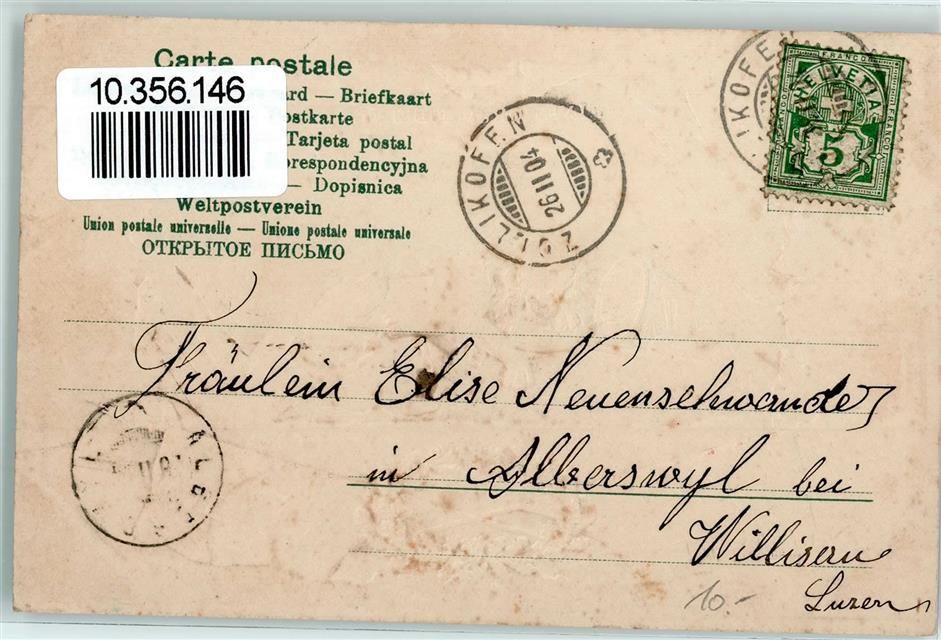 Carte postale
10.356.146
rd — Briefkaart
ostkarte
Tarjeta postal
orespondencyjna
— Dopisnica
Weltpostverein
Union postale universelle — Unione postale universale
ОТКРЫТОЕ ПИСЬМО
ZOLLIKOFEN
26 II 04
IKOFEN
FRANCO
HELVETIA
FRANCO
5
Fräulein Elise Neuenschwander
in Alberswyl bei
Willisau
Luzern
10.-